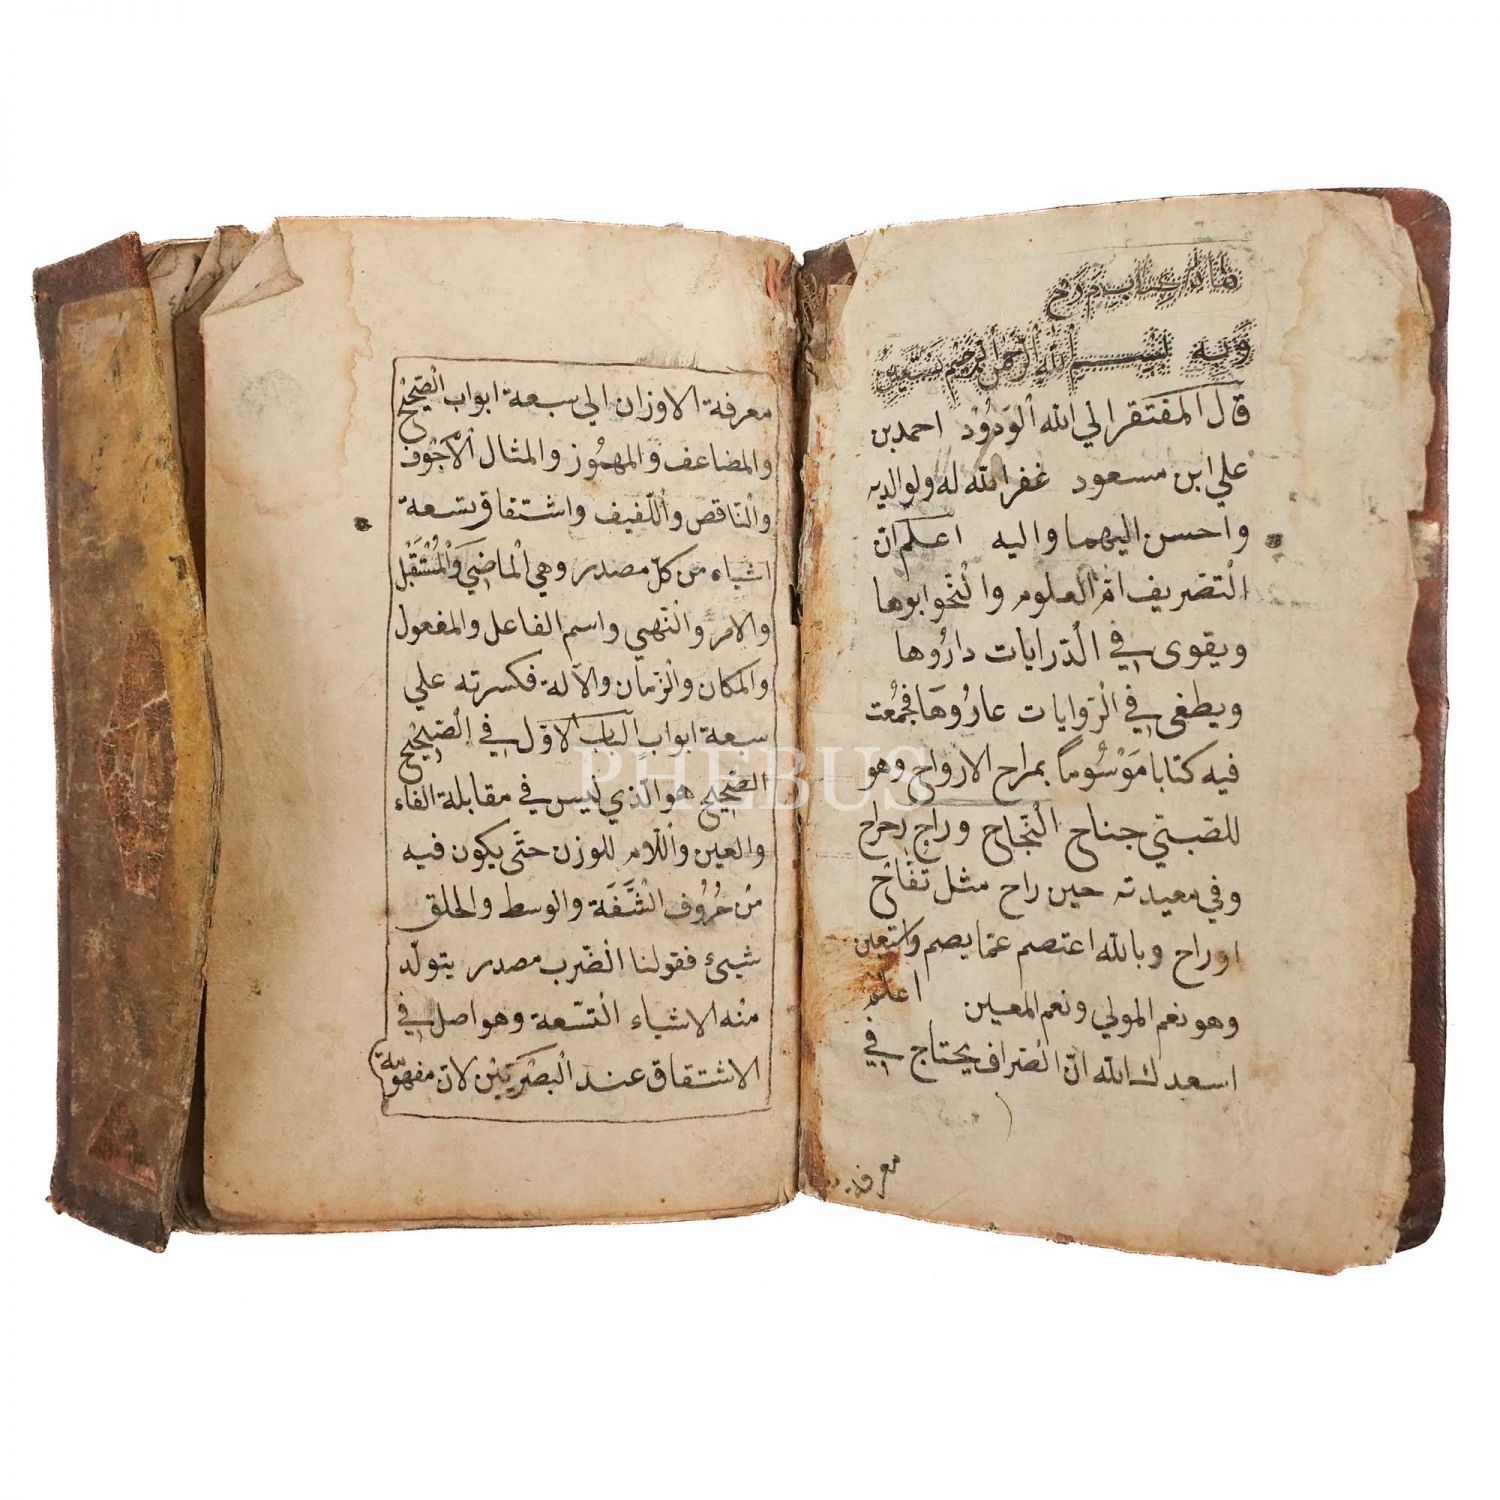 هذا كتاب مراح
وبه بسم الله الرحمن الرحيم نستعين
قال المفتقر الي الله الودود احمد بن
علي ابن مسعود غفر الله له ولوالديه
واحسن اليهما واليه اعلم ان
التصريف ام العلوم والنحو ابوها
ويقوى في الدرايات داروها
ويطغى في الروايات عاروها فجمعت
فيه كتابا موسوما بمراح الارواح وهو
للصبتي جناح النجاح وراح رحراح
وفي معيدته حين راح مثل تفاح
اوراح وبالله اعتصم عما يصم واستعين
وهو نعم المولي ونعم المعين اعلم
اسعدك الله ان الصراف يحتاج في
معرفة
معرفة الاوزان الي سبعة ابواب الصحيح
والمضاعف والمهموز والمثال الاجوف
والناقص واللفيف واشتقاق تسعة
اشياء من كل مصدر وهي الماضي والمستقبل
والامر والنهي واسم الفاعل والمفعول
والمكان والزمان والآلة فكسرته علي
سبعة ابواب الباب الاول في الصحيح
الصحيح هو الذي ليس في مقابلة الفاء
والعين واللام للوزن حتى يكون فيه
من حروف الشفة والوسط والحلق
شيئ فقولنا الضرب مصدر يتولد
منه الاشياء التسعة وهو اصل في
الاشتقاق عند البصريين لان مفهومه
PHEBUS